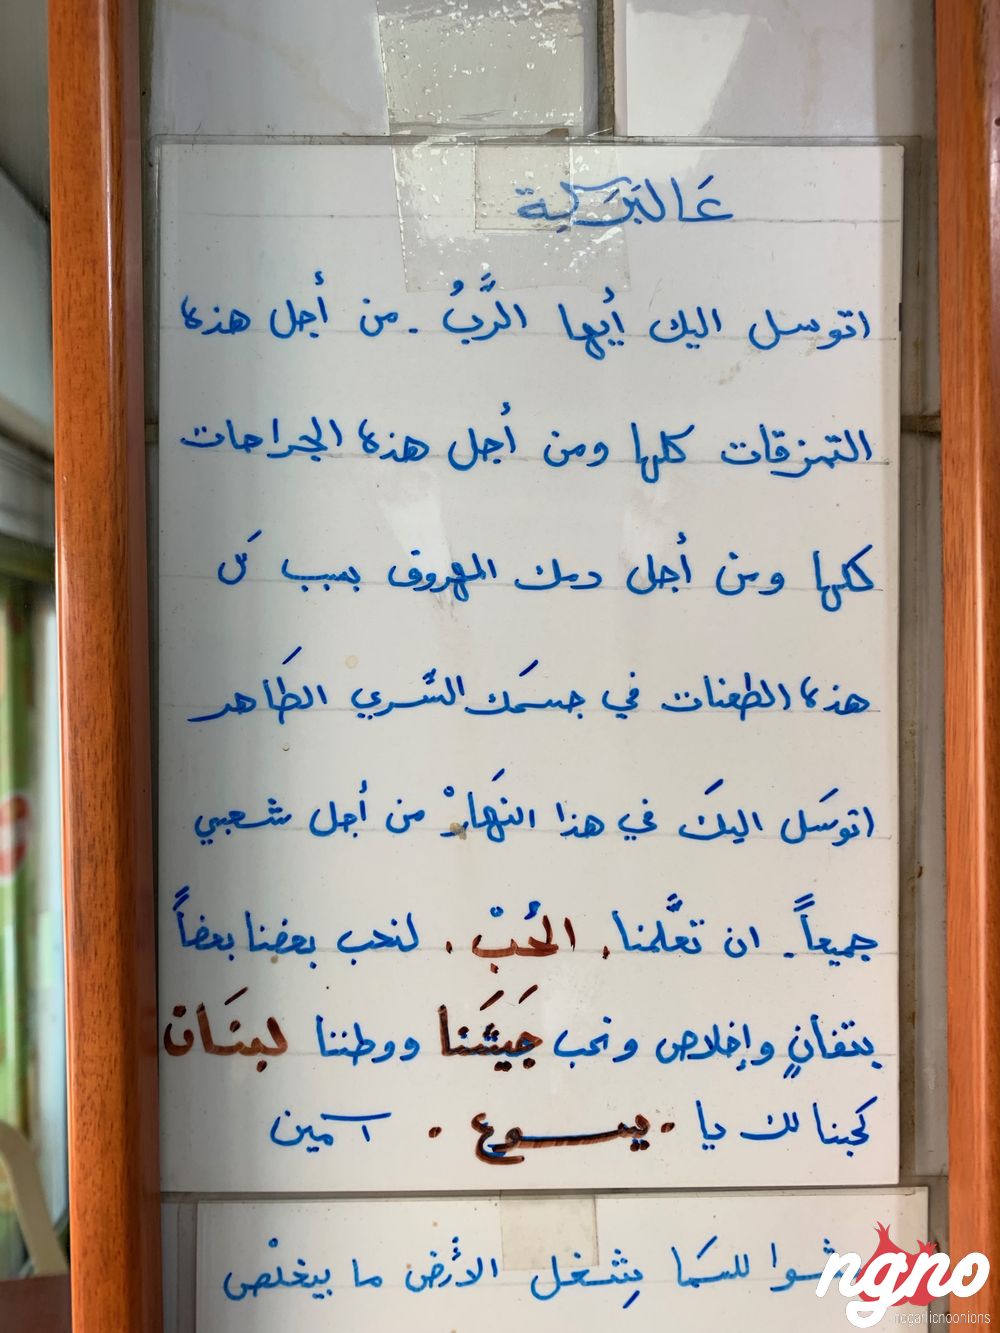 عَالبَرَكِة
اتوسل اليك أيها الرَّبُ. من أجل هذه
التمزقات كلها ومن أجل هذه الجراحات
كلها ومن أجل دمك المهروق بسبب كل
هذه الطعنات في جسمَك السَّري الطَاهر
اتوسَل اليكَ في هذا النهَارْ من أجل شعبي
جميعاً. ان تعَّلمنا. الحُبْ. لنحب بعضنا بعضاً
بتفانٍ وإخلاص ونحب جَيشَنا ووطننا لبنَان
كحبنا لك يا. يسوع. آمين
للسمَا شغل الأرض ما بيخلْص
ngno
nogarlicnoonions